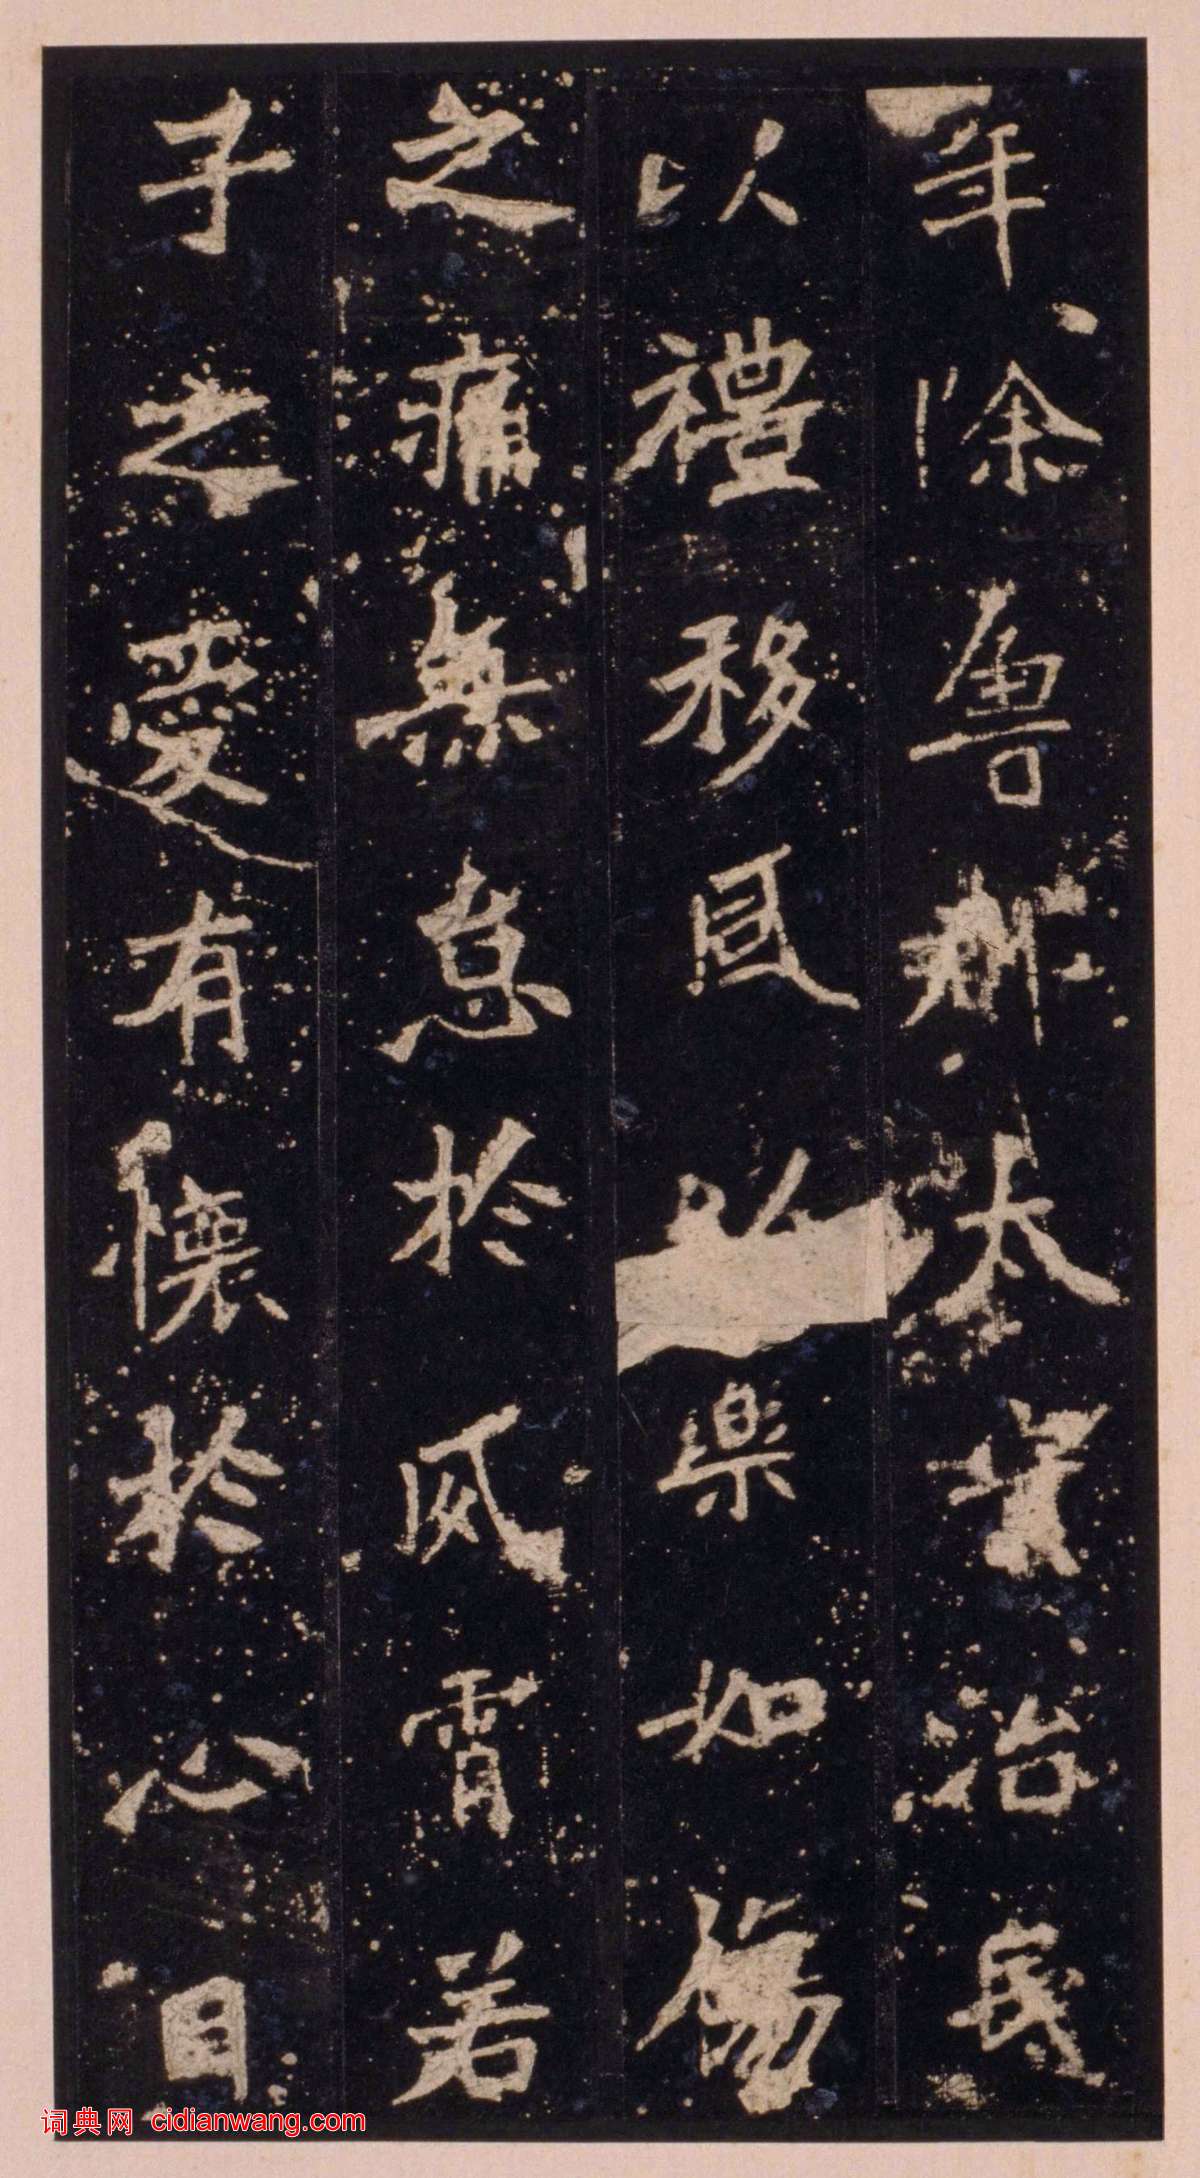 年除魯郡太守治民
以禮移風以樂如傷
之痛無怠於夙宵若
子之愛有懷於心目
词典网 cidianwang.com